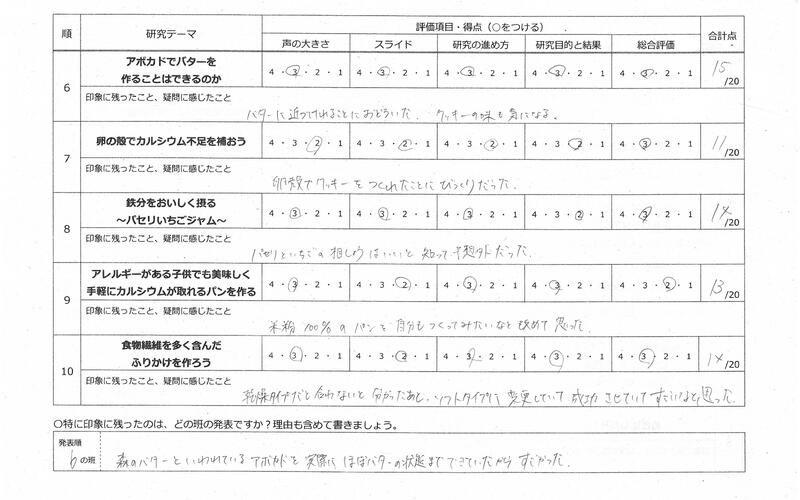 順 研究テーマ 評価項目・得点（○をつける） 合計点
声の大きさ スライド 研究の進め方 研究目的と結果 総合評価
6 アボカドでバターを
作ることはできるのか
4・3・2・1 4・3・2・1 4・3・2・1 4・3・2・1 4・3・2・1 15/20
印象に残ったこと、疑問に感じたこと
バターに近づけれることにおどろいた。クッキーの味も気になる。
7 卵の殻でカルシウム不足を補おう 4・3・2・1 4・3・2・1 4・3・2・1 4・3・2・1 4・3・2・1 11/20
印象に残ったこと、疑問に感じたこと
卵殻でクッキーをつくれたことにびっくりだった.
8 鉄分をおいしく摂る
～パセリいちごジャム～
4・3・2・1 4・3・2・1 4・3・2・1 4・3・2・1 4・3・2・1 14/20
印象に残ったこと、疑問に感じたこと
パセリといちごの相しょうはいいと知って予想外だった.
9 アレルギーがある子供でも美味しく
手軽にカルシウムが取れるパンを作る
4・3・2・1 4・3・2・1 4・3・2・1 4・3・2・1 4・3・2・1 13/20
印象に残ったこと、疑問に感じたこと
米粉100%のパンを自分もつくってみたいなと改めて思った.
10 食物繊維を多く含んだ
ふりかけを作ろう
4・3・2・1 4・3・2・1 4・3・2・1 4・3・2・1 4・3・2・1 14/20
印象に残ったこと、疑問に感じたこと
乾燥タイプだと合わないと分かったあと、ソフトタイプに変更していて成功させていてすごいなと思った.
○特に印象に残ったのは、どの班の発表ですか？理由も含めて書きましょう。
発表順
6の班
森のバターといわれているアボカドを実際にほぼバターの状態までできていたからすごかった.